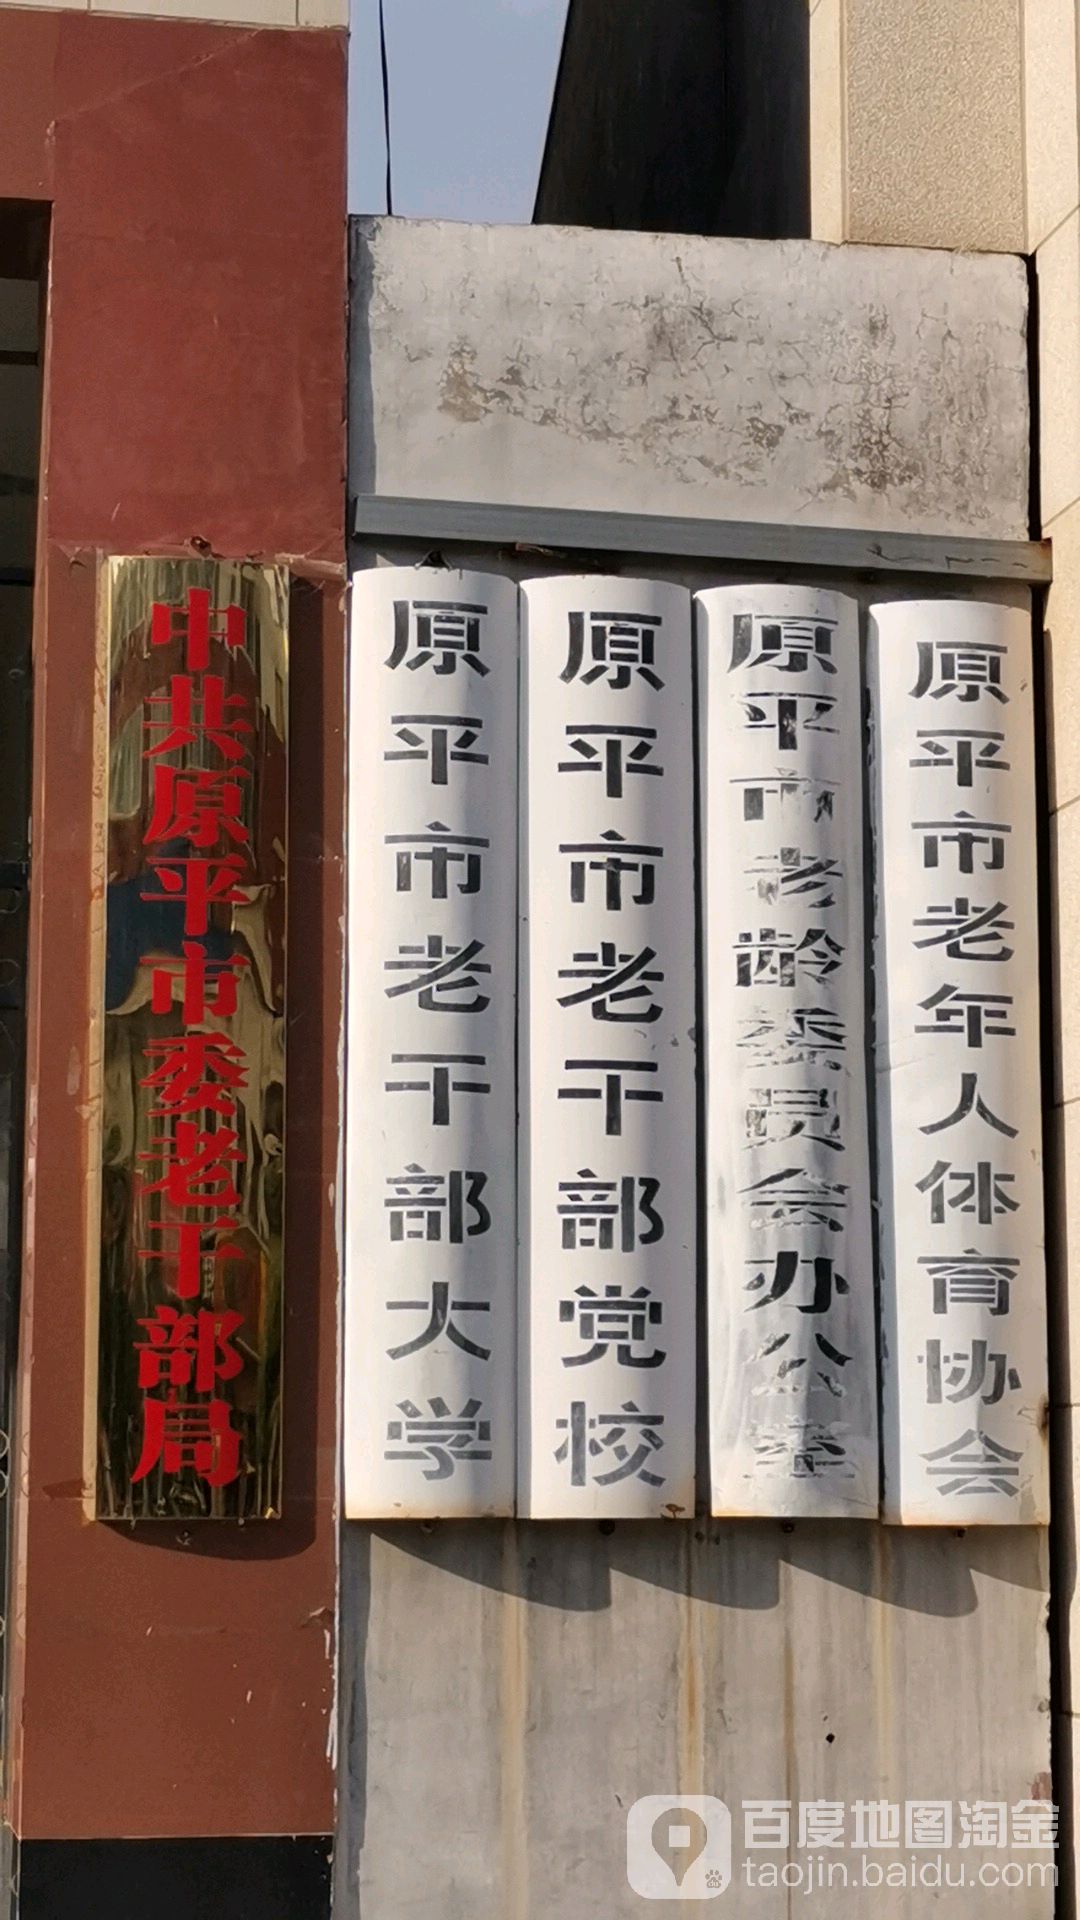 中共原平市委老干部局
原平市老干部大学
原平市老干部党校
原平市老龄委员会办公室
原平市老年人体育协会
百度地图淘金
taojin.baidu.com